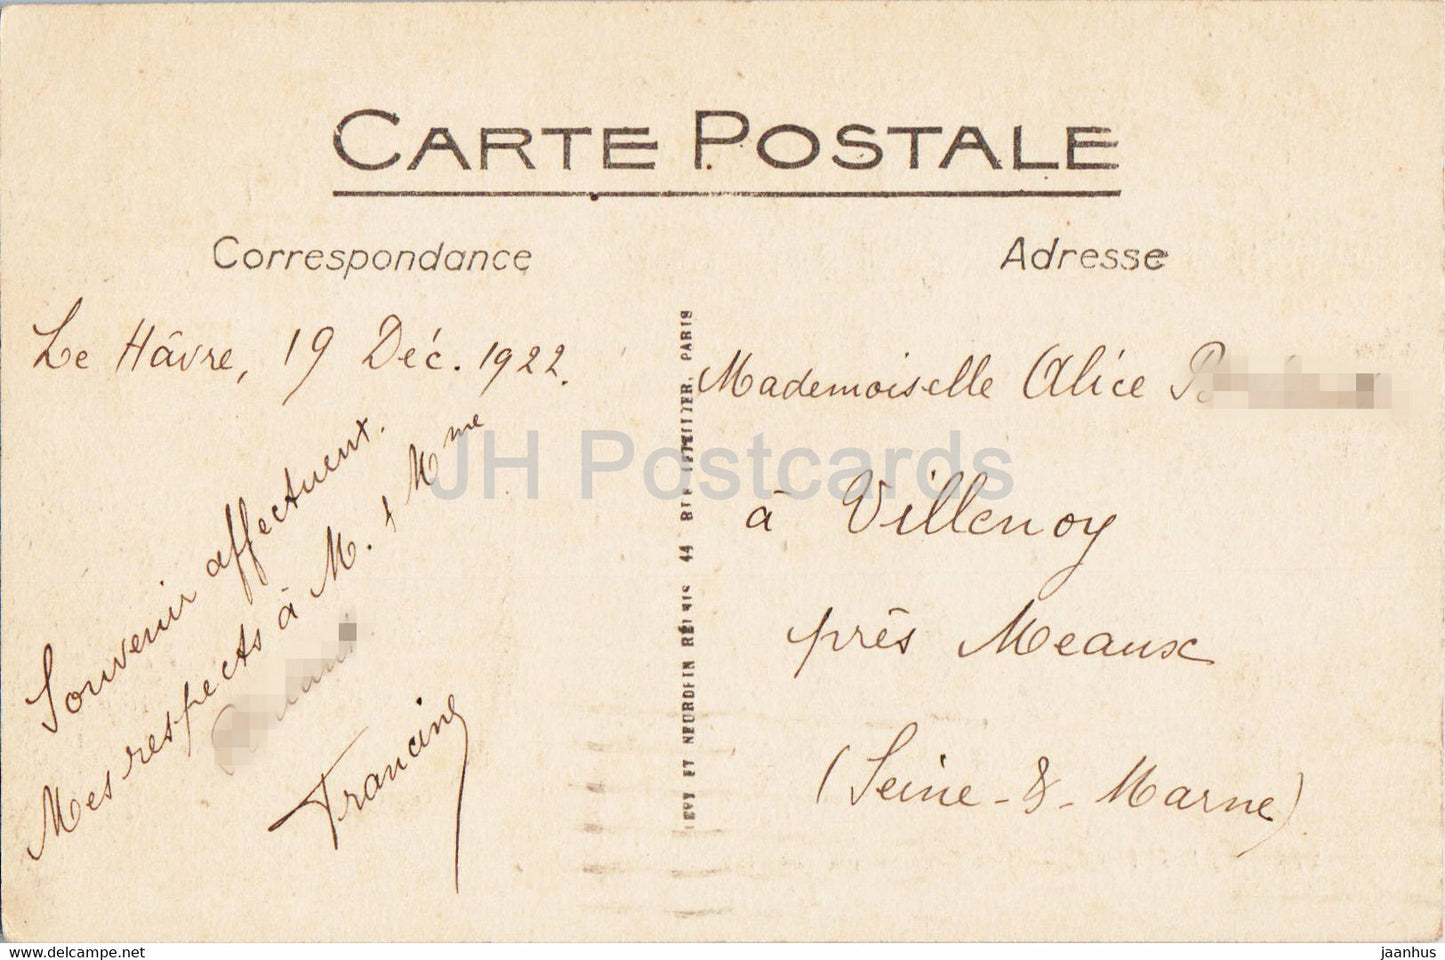 CARTE POSTALE
Correspondance
Adresse
Le Hâvre, 19 Déc. 1922.
Souvenir affectueux.
Mes respects à M. & Mme
Francine
LEVY ET NEURDEIN RÉUNIS 44 RUE LETELLIER, PARIS
Mademoiselle Alice
à Villenoy
près Meaux
(Seine-&-Marne)
JH Postcards
www.hippostcard.com/store/jh-postcards
jaanhus